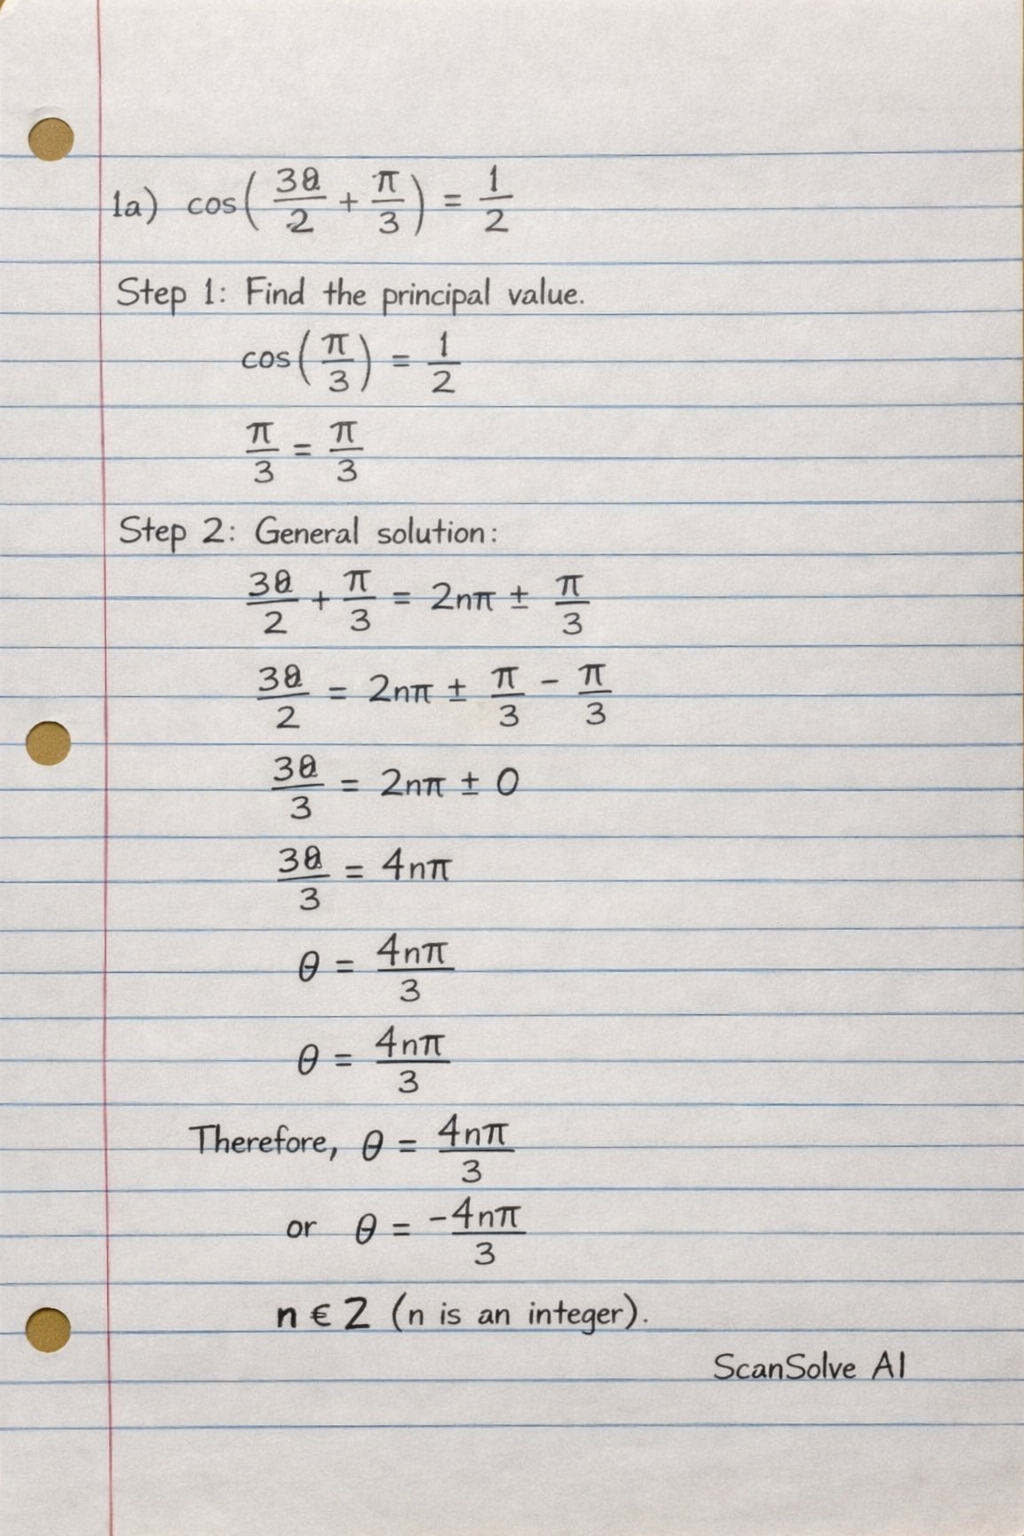 1a) cos(3θ/2 + π/3) = 1/2
Step 1: Find the principal value.
cos(π/3) = 1/2
π/3 = π/3
Step 2: General solution:
3θ/2 + π/3 = 2nπ ± π/3
3θ/2 = 2nπ ± π/3 - π/3
3θ/3 = 2nπ ± 0
3θ/3 = 4nπ
θ = 4nπ/3
θ = 4nπ/3
Therefore, θ = 4nπ/3
or θ = -4nπ/3
n ∈ Z (n is an integer).
ScanSolve AI